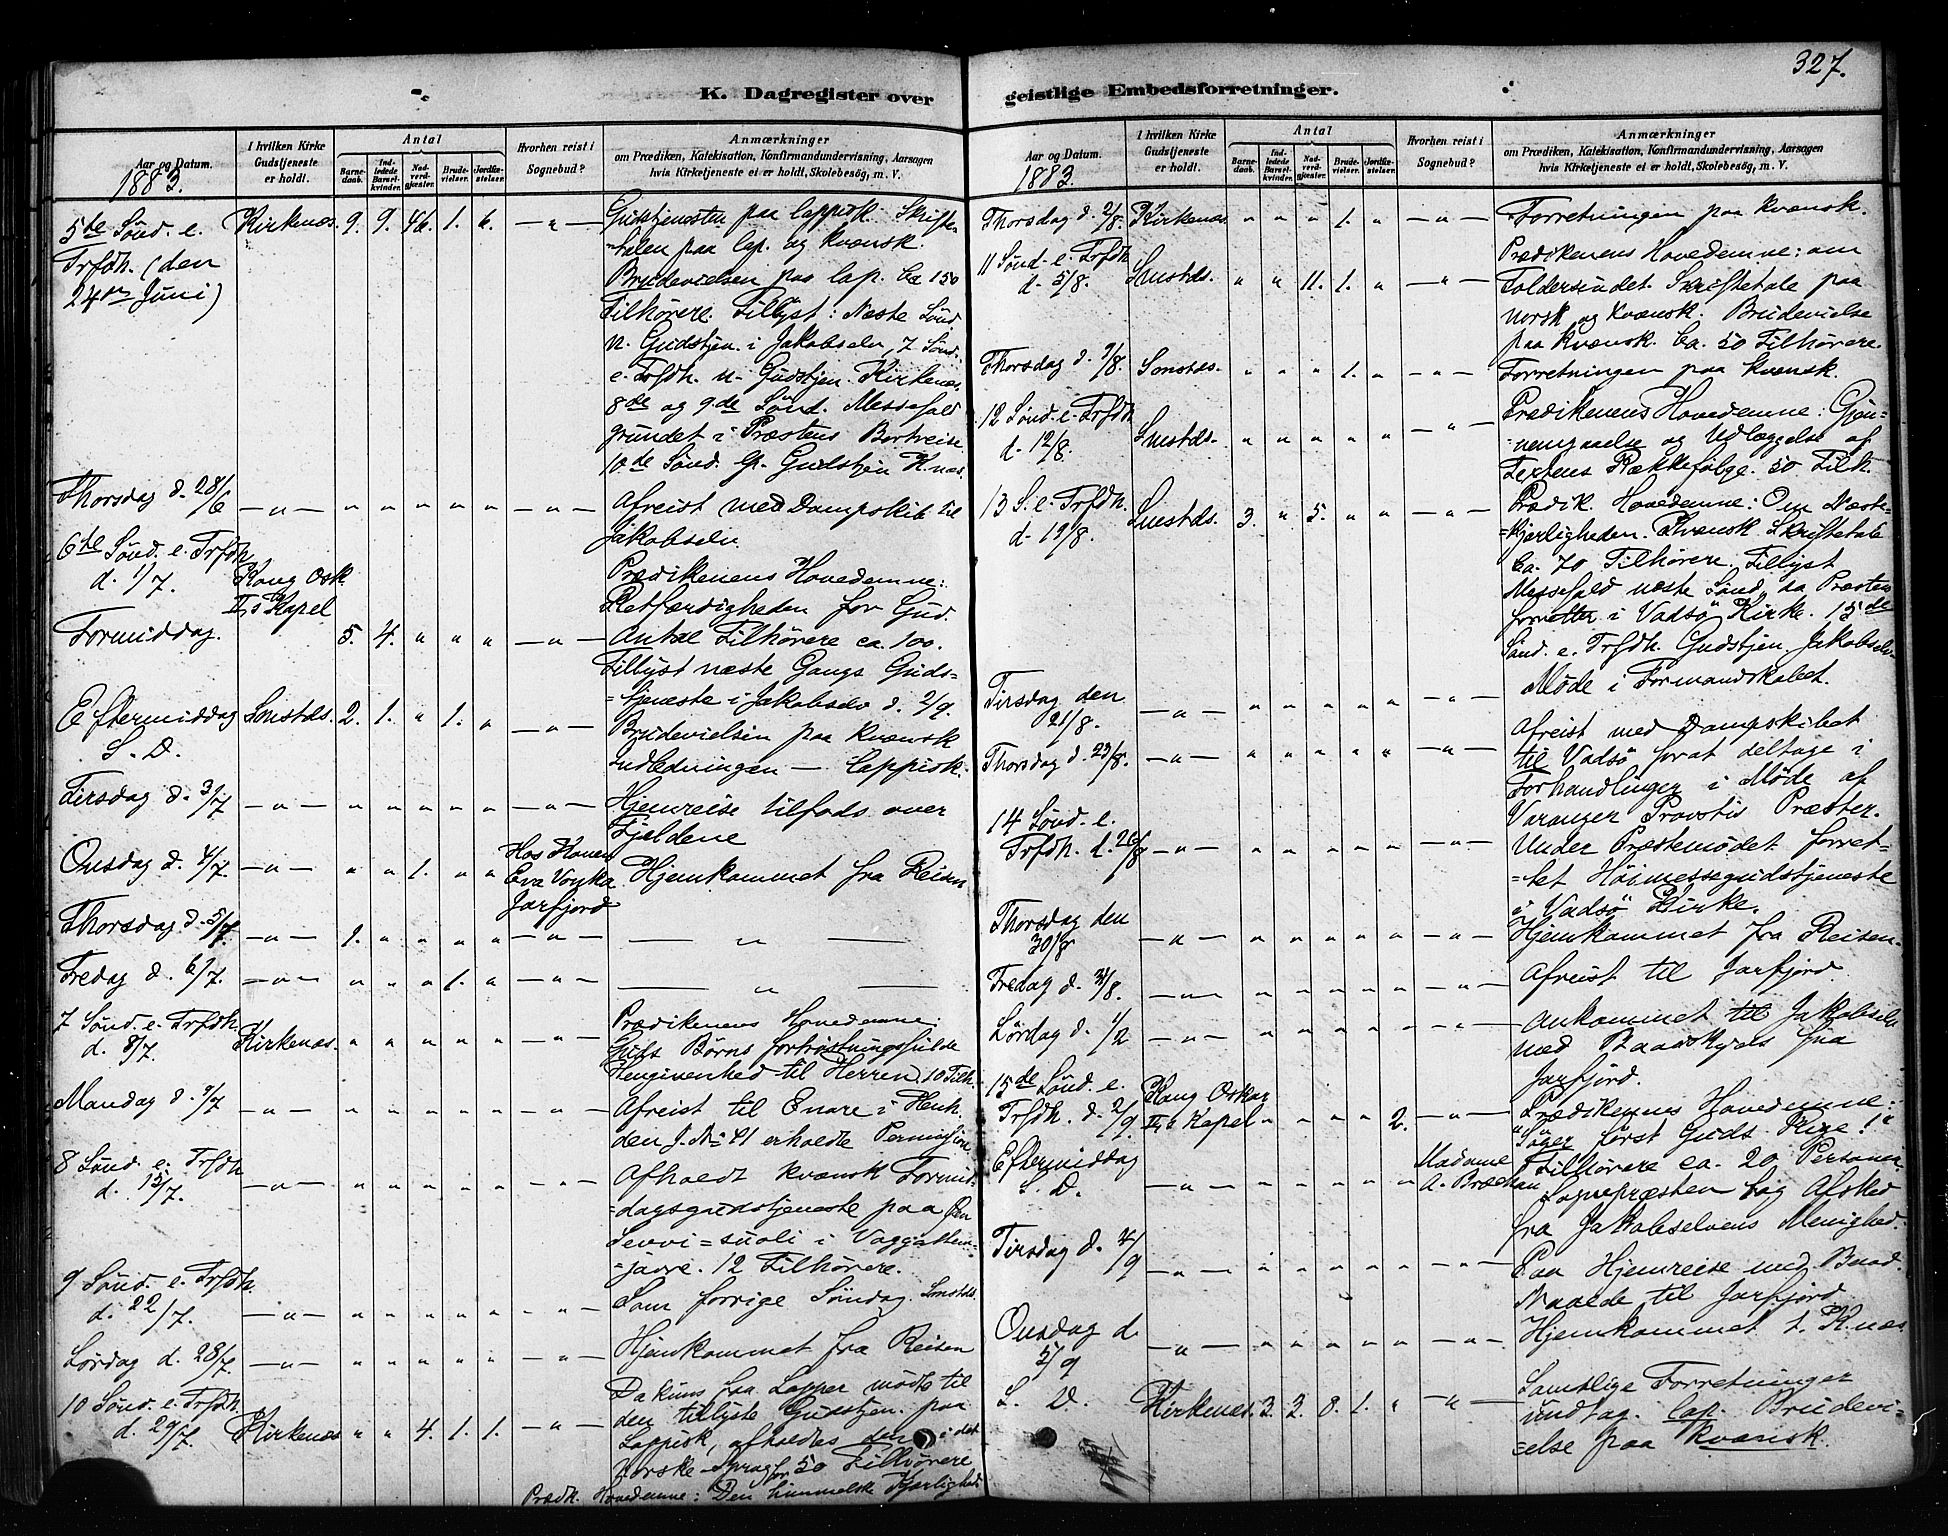 327.
K. Dagregister over
geistlige Embedsforretninger.
Aar og Datum.
1883.
I hvilken Kirke Gudstjeneste er holdt.
Antal
Barnedaab.
Indledede Barselkvinder.
Nadverdgjæster.
Brudevielser.
Jordfæstelser.
Hvorhen reist i Sognebud?
Anmærkninger
om Prædiken, Katekisation, Konfirmandundervisning, Aarsagen
hvis Kirketjeneste ei er holdt, Skolebesøg, m. V.
5te Sönd. e. Kirkenæs. 9. 9. 46. 1. 6. — " — Gudstjenesten paa lappisk. Skrifte-
Trfdh. (den =talen paa lap. og kvænsk.
24de Juni) Brudevielsen paa lap. Ca 150
Tilhörere. Tillyst: Næste Sönd.
n. Gudstjen. i Jakobselv, 7 Sönd.
e. Trfdh. n. Gudstjen. Kirkenæs.
8de og 9de Sönd. Messefald
grundet i Præstens Bortreise
10de Sönd. lp. Gudstjen Knæs.
Thorsdag d. 28/6 — " — " " " " " — " — Afreist med Dampskib til
Jakobselv.
6te Sönd. e. Trfdh. Prædikenens Hovedemne:
d. 1/7. Kong Osk. Retfærdigheden for Gud.
IIs Kapel
Formiddag. 5. 4. " " " — " — Antal Tilhörere ca. 100.
Tillyst næste Gangs Guds-
=tjeneste i Jakobselv d. 2/9.
Eftermiddag Smstds. 2. 1. " 1. " — " — Brudevielsen paa kvænsk
S. D. Indledningen — lappisk.
Tirsdag d. 3/7 — " — " " " " " — " — Hjemreise tilfods over
Fjeldene
Onsdag d. 4/7 — " — " " 1. " " Hos Konen
Eva Hjemkommet fra Reisen
Jarfjord
Thorsdag d. 5/7. — " — 1. " " " " — " — — " —
Fredag d. 6/7. — " — " " " 1. " — " — — " —
7 Sönd. e. Trfdh. Prædikenens Hovedemne:
d. 8/7. Kirkenæs. " " " " " — " — Guds Börns fortröstningsfulde
Hengivenhed til Herren. 10 Tilh.
Mandag d. 9/7 — " — " " " " " — " — Afreist til Enare i Henh.
den J. No 41 erholdte Permission
8 Sönd. e. Trfdh Afholdt kvænsk Formid-
d. 15/7. — " — " " " " " — " — =dagsgudstjeneste paa
i
=javre. 12 Tilhörere.
9 Sönd. e. Trfdh.
d. 22/7. — " — " " " " " — " — Som forrige Söndag. Smstds.
Lördag d. 28/7. — " — " " " " " — " — Hjemkommet fra Reisen
10 Sönd. e. Trfdh. Da kuns faa Lapper mödte til
d. 29/7. Kirkenæs " " 4. 1. 1. — " — den tillyste Gudstjen. paa
Lappisk, afholdtes den i det
Norske Sprog for 50 Tilhörere
Prædk. Hovedemne: Den himmelske Kjærlighed
Aar og Datum.
1883.
I hvilken Kirke Gudstjeneste er holdt.
Antal
Barnedaab.
Indledede Barselkvinder.
Nadverdgjæster.
Brudevielser.
Jordfæstelser.
Hvorhen reist i Sognebud?
Anmærkninger
om Prædiken, Katekisation, Konfirmandundervisning, Aarsagen
hvis Kirketjeneste ei er holdt, Skolebesøg, m. V.
Thorsdag d. 2/8. Kirkenæs. " " " 1. " — " — Forretningen paa kvænsk.
11 Sönd. e. Trfdh. Prædikenens Hovedemne: om
d. 5/8. Smstds. " " 11. 1. " — " — Toldersindet. Skriftetale paa
norsk og kvænsk. Brudevielse
paa kvænsk. Ca. 50 Tilhörere.
Thorsdag d. 9/8. Smstds. " " " 1. " — " — Forretningen paa kvænsk.
12 Sönd. e. Trfdh Prædikenens Hovedemne: Gjen-
d. 12/8. Smstds. " " " " " — " — =nemgaaelse og Udlæggelse af
Textens Rækkefölge. 50 Tilh.
13 S. e. Trfdh. Smstds. 3. " 5. " " — " — Prædik. Hovedemne: Om Næste-
d. 19/8. =kjærligheden. Kvænsk Skriftetale
Ca. 70 Tilhörere. Tillyst
Messefald næste Sönd., da Præsten
forretter i Vadsö Kirke. 15de
Sönd. e. Trfdh. Gudstjen. Jakobselv.
Tirsdag den 21/8. — " — " " " " " — " — Möde i Formandskabet.
Thorsdag d. 23/8. — " — " " " " " — " — Afreist med Dampskibet
til Vadsö forat deltage i
Forhandlinger i Möde af
Varanger Provstis Præster.
14 Sönd. e.
Trfdh. d. 26/8 — " — " " " " " — " — Under Præstemödet forret-
=tet Höimessegudstjeneste
i Vadsö Kirke.
Thorsdag den 30/8 — " — " " " " " — " — Hjemkommet fra Reisen.
Fredag d. 31/8. — " — " " " " " — " — Afreist til Jarfjord.
Lördag d. — " — " " " " " — " — Ankommet til Jakobselv
med Baadskyds fra
Jarfjord.
15de Sönd. e. Kong Oskar Prædikenens Hovedemne:
Trfdh. d. 2/9. IIs Kapel " " " " 2. — " — "Söger först Guds Rige!"
Tilhörere ca. 20 Personer
Eftermiddag Madame
S. D. — " — " " " " " A. Sognepræsten tog Afsked
fra Jakobselvens Menighed.
Tirsdag d. 4/9 — " — " " " " " — " — Paa Hjemreise med Baad.
Naaede til Jarfjord
Onsdag d. 5/9 — " — " " " " " — " — Hjemkommet t. Knæs
S. D. Kirkenæs. 3. 3. 8. 1. " — " — Samtlige Forretninger
undtag. lap. Brudevi-
=else paa kvænsk.